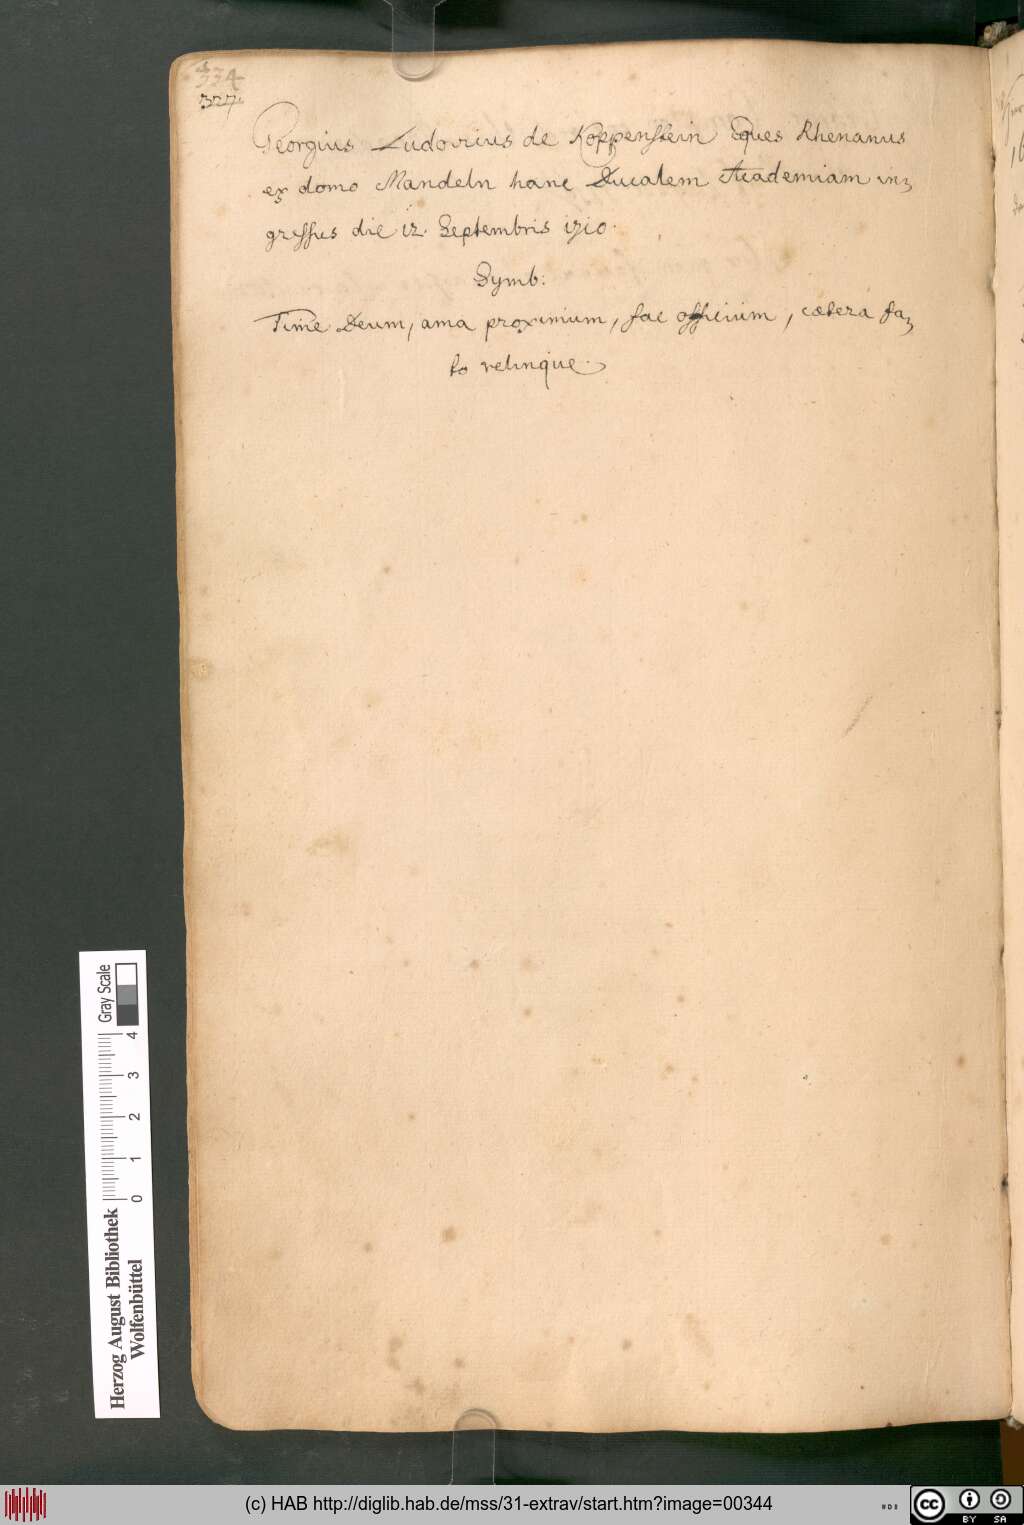 334
327.
Georgius Ludovicus de Koppenstein Eques Rhenanus
ex domo Mandeln hanc Ducalem Academiam in-
gressus die 12. Septembris 1710.
Symb:
Time Deum, ama proximum, fac officium, cætera fa-
to relinque.
Herzog August Bibliothek
Wolfenbüttel
0 1 2 3 4
Gray Scale
(c) HAB http://diglib.hab.de/mss/31-extrav/start.htm?image=00344
cc BY SA